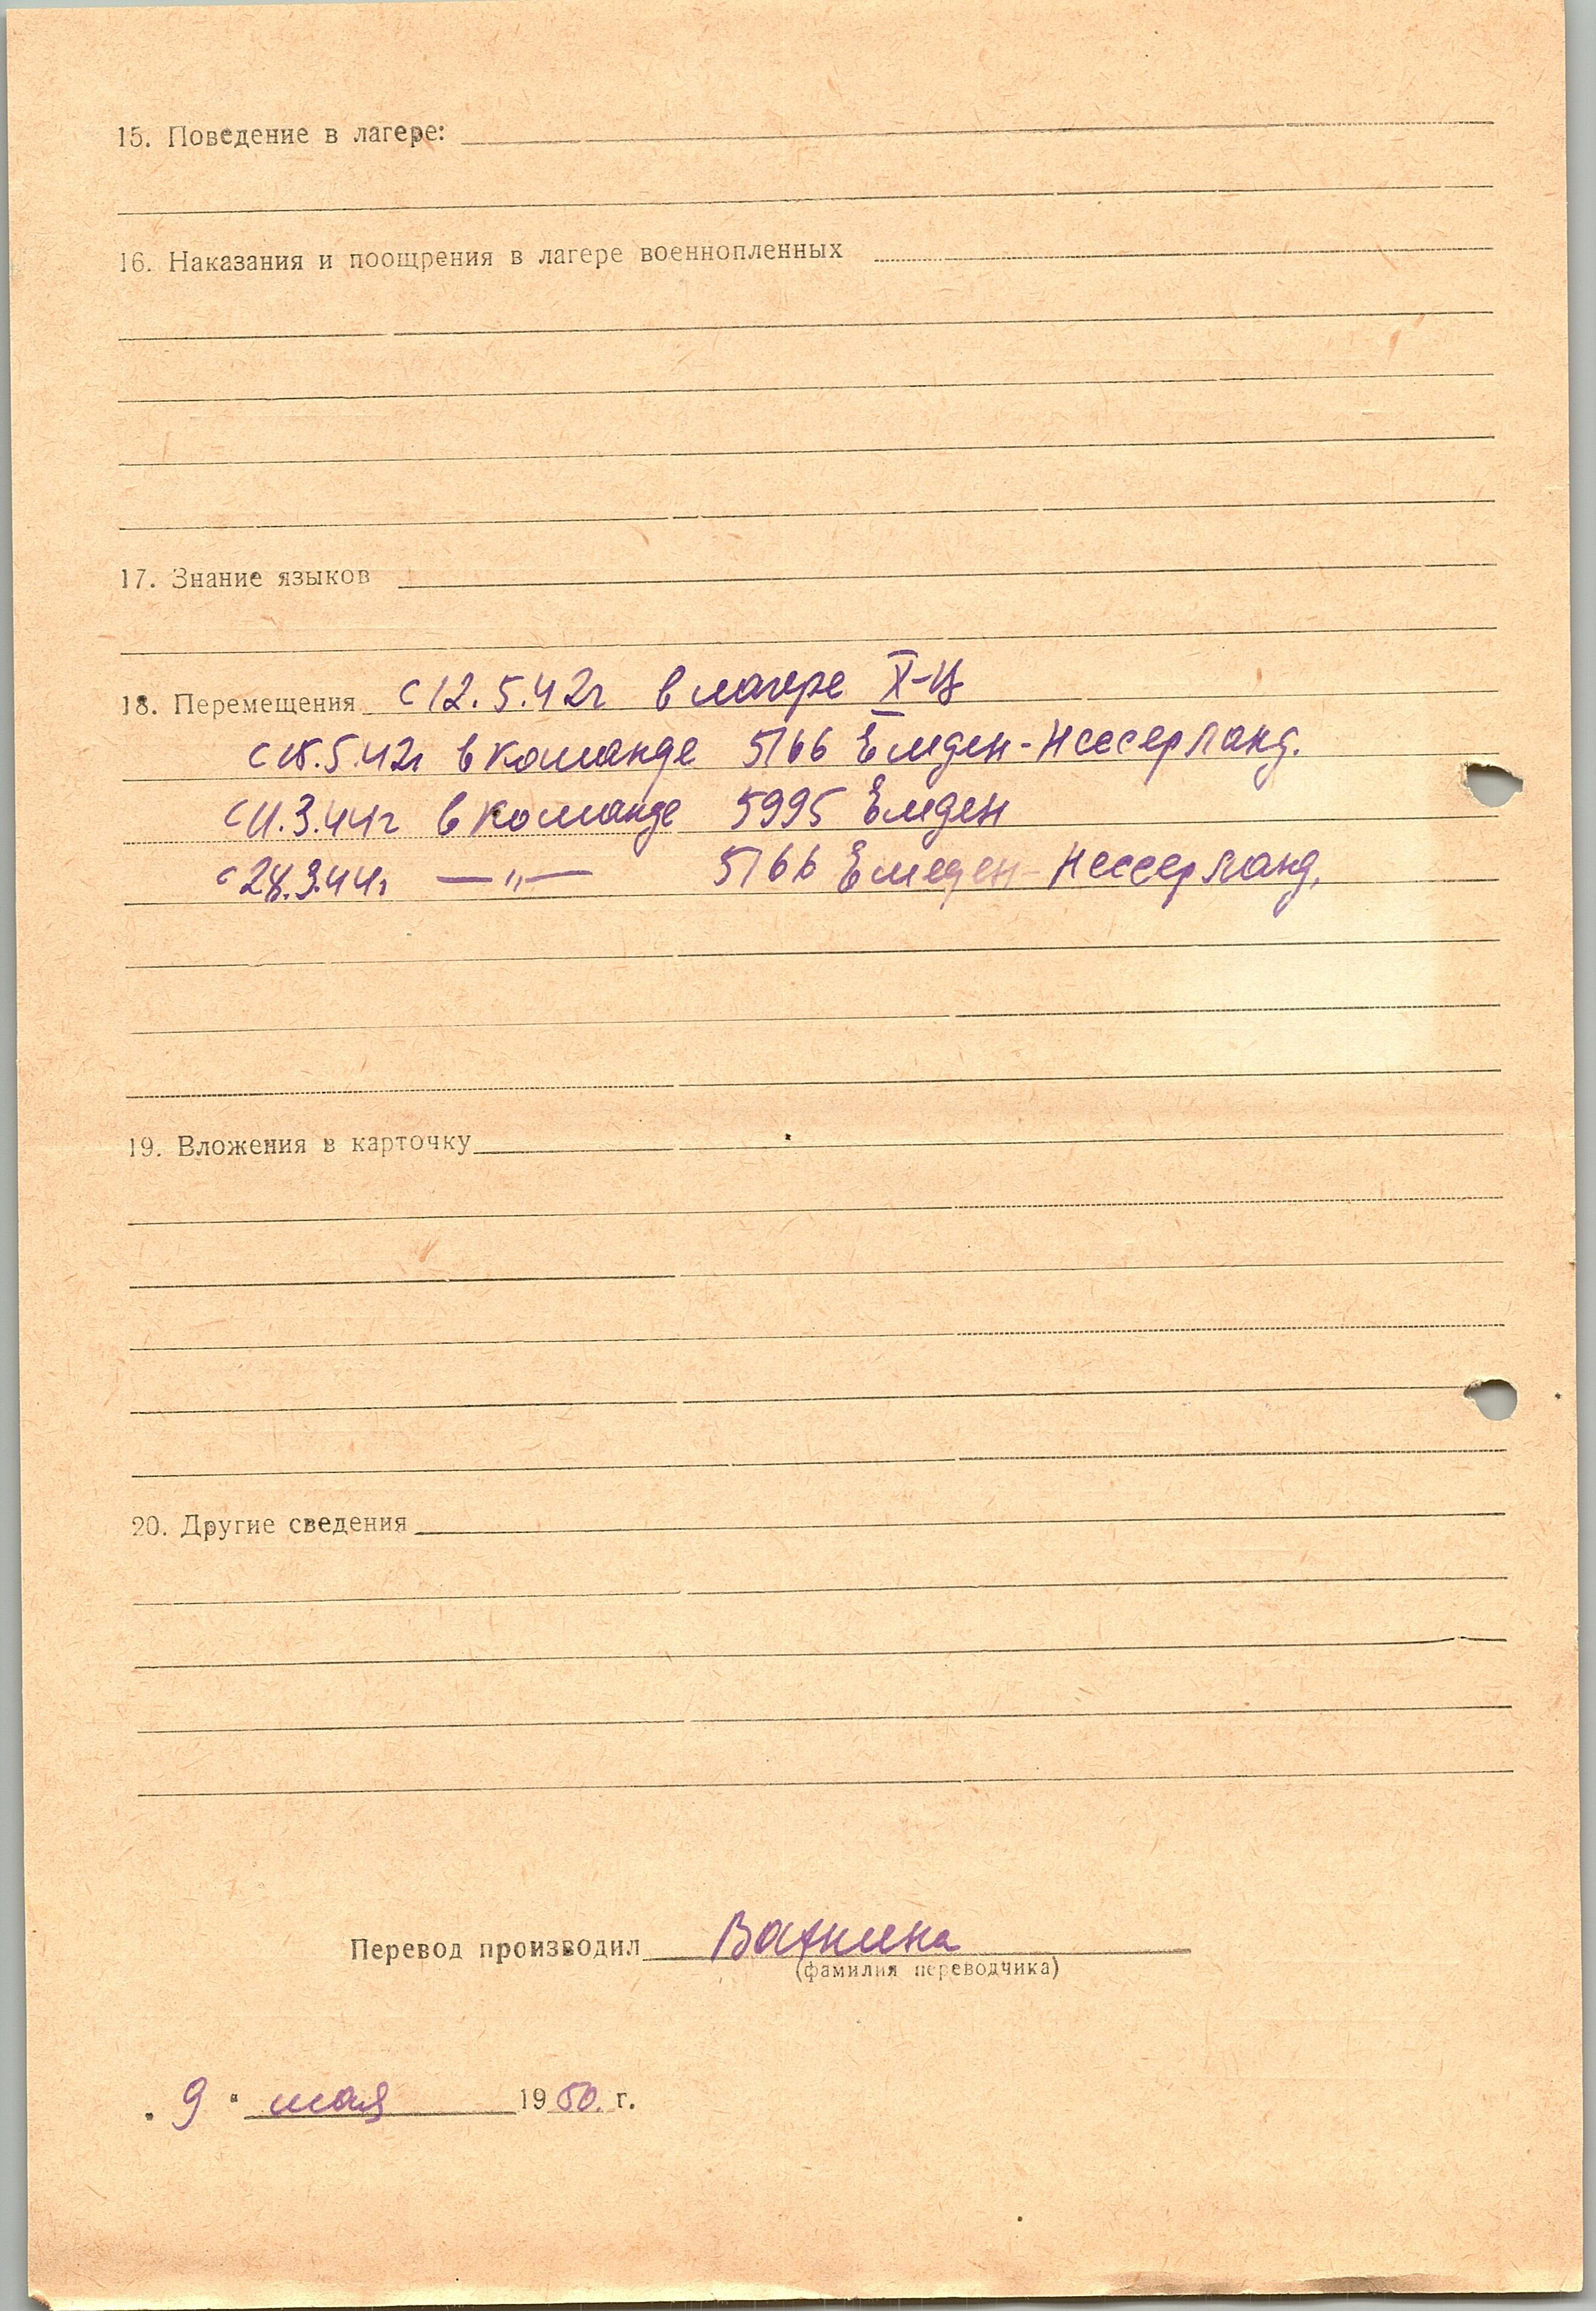 15. Поведение в лагере:
16. Наказания и поощрения в лагере военнопленных
17. Знание языков
18. Перемещения с 12.5.42г в лагере X-Ц
с 15.5.42г в команде 5166 Емден-Нессерланд.
с 11.3.44г в команде 5995 Емден
с 28.3.44г —"— 5166 Емеден-Нессерланд.
19. Вложения в карточку
20. Другие сведения
Перевод производил Ватнина
(фамилия переводчика)
"9" мая 1950 г.